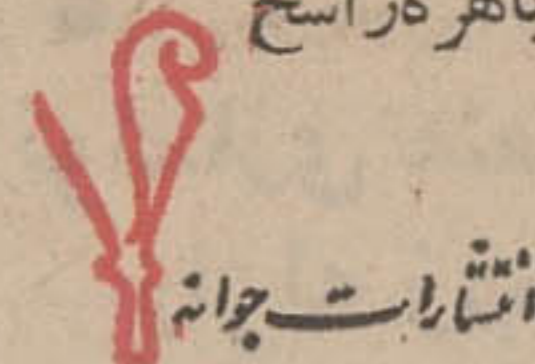 ماهر کار اسح
انتشارات جوانه